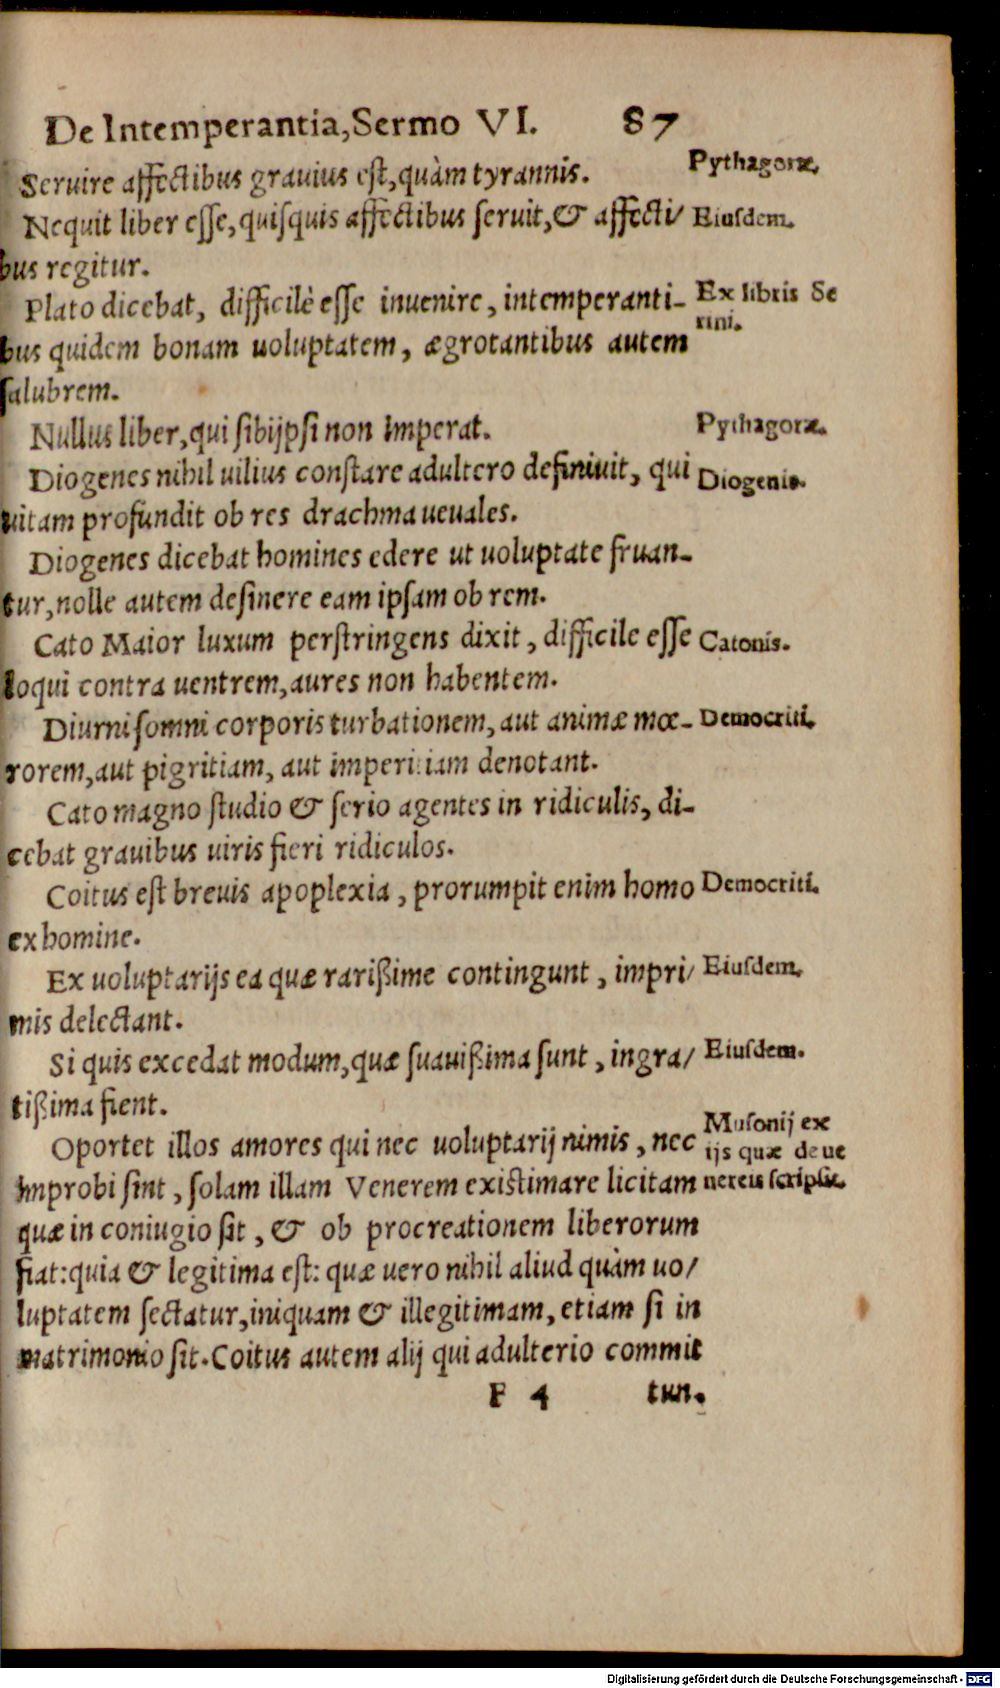 De Intemperantia, Sermo VI. 87
Seruire affectibus grauius est, quàm tyrannis. Pythagoræ.
Nequit liber esse, quisquis affectibus seruit, & affecti/ Eiusdem.
bus regitur.
Plato dicebat, difficilè esse inuenire, intemperanti- Ex libris Se
bus quidem bonam uoluptatem, ægrotantibus autem rini.
salubrem.
Nullus liber, qui sibijpsi non imperat. Pythagoræ.
Diogenes nihil uilius constare adultero definiuit, qui Diogenis.
uitam profundit ob res drachma ueuales.
Diogenes dicebat homines edere ut uoluptate fruan-
tur, nolle autem desinere eam ipsam ob rem.
Cato Maior luxum perstringens dixit, difficile esse Catonis.
loqui contra uentrem, aures non habentem.
Diurni somni corporis turbationem, aut animæ mœ- Democriti.
rorem, aut pigritiam, aut imperitiam denotant.
Cato magno studio & serio agentes in ridiculis, di-
cebat grauibus uiris fieri ridiculos.
Coitus est breuis apoplexia, prorumpit enim homo Democriti.
ex homine.
Ex uoluptarijs ea quæ rarißime contingunt, impri/ Eiusdem.
mis delectant.
Si quis excedat modum, quæ suauißima sunt, ingra/ Eiusdem.
tißima fient.
Oportet illos amores qui nec uoluptarij nimis, nec Musonij ex
improbi sint, solam illam Venerem existimare licitam ijs quæ de ue
quæ in coniugio sit, & ob procreationem liberorum nereis scripsit.
fiat: quia & legitima est: quæ uero nihil aliud quàm uo/
luptatem sectatur, iniquam & illegitimam, etiam si in
matrimonio sit. Coitus autem alij qui adulterio commit
F 4 tun.
Digitalisierung gefördert durch die Deutsche Forschungsgemeinschaft - DFG